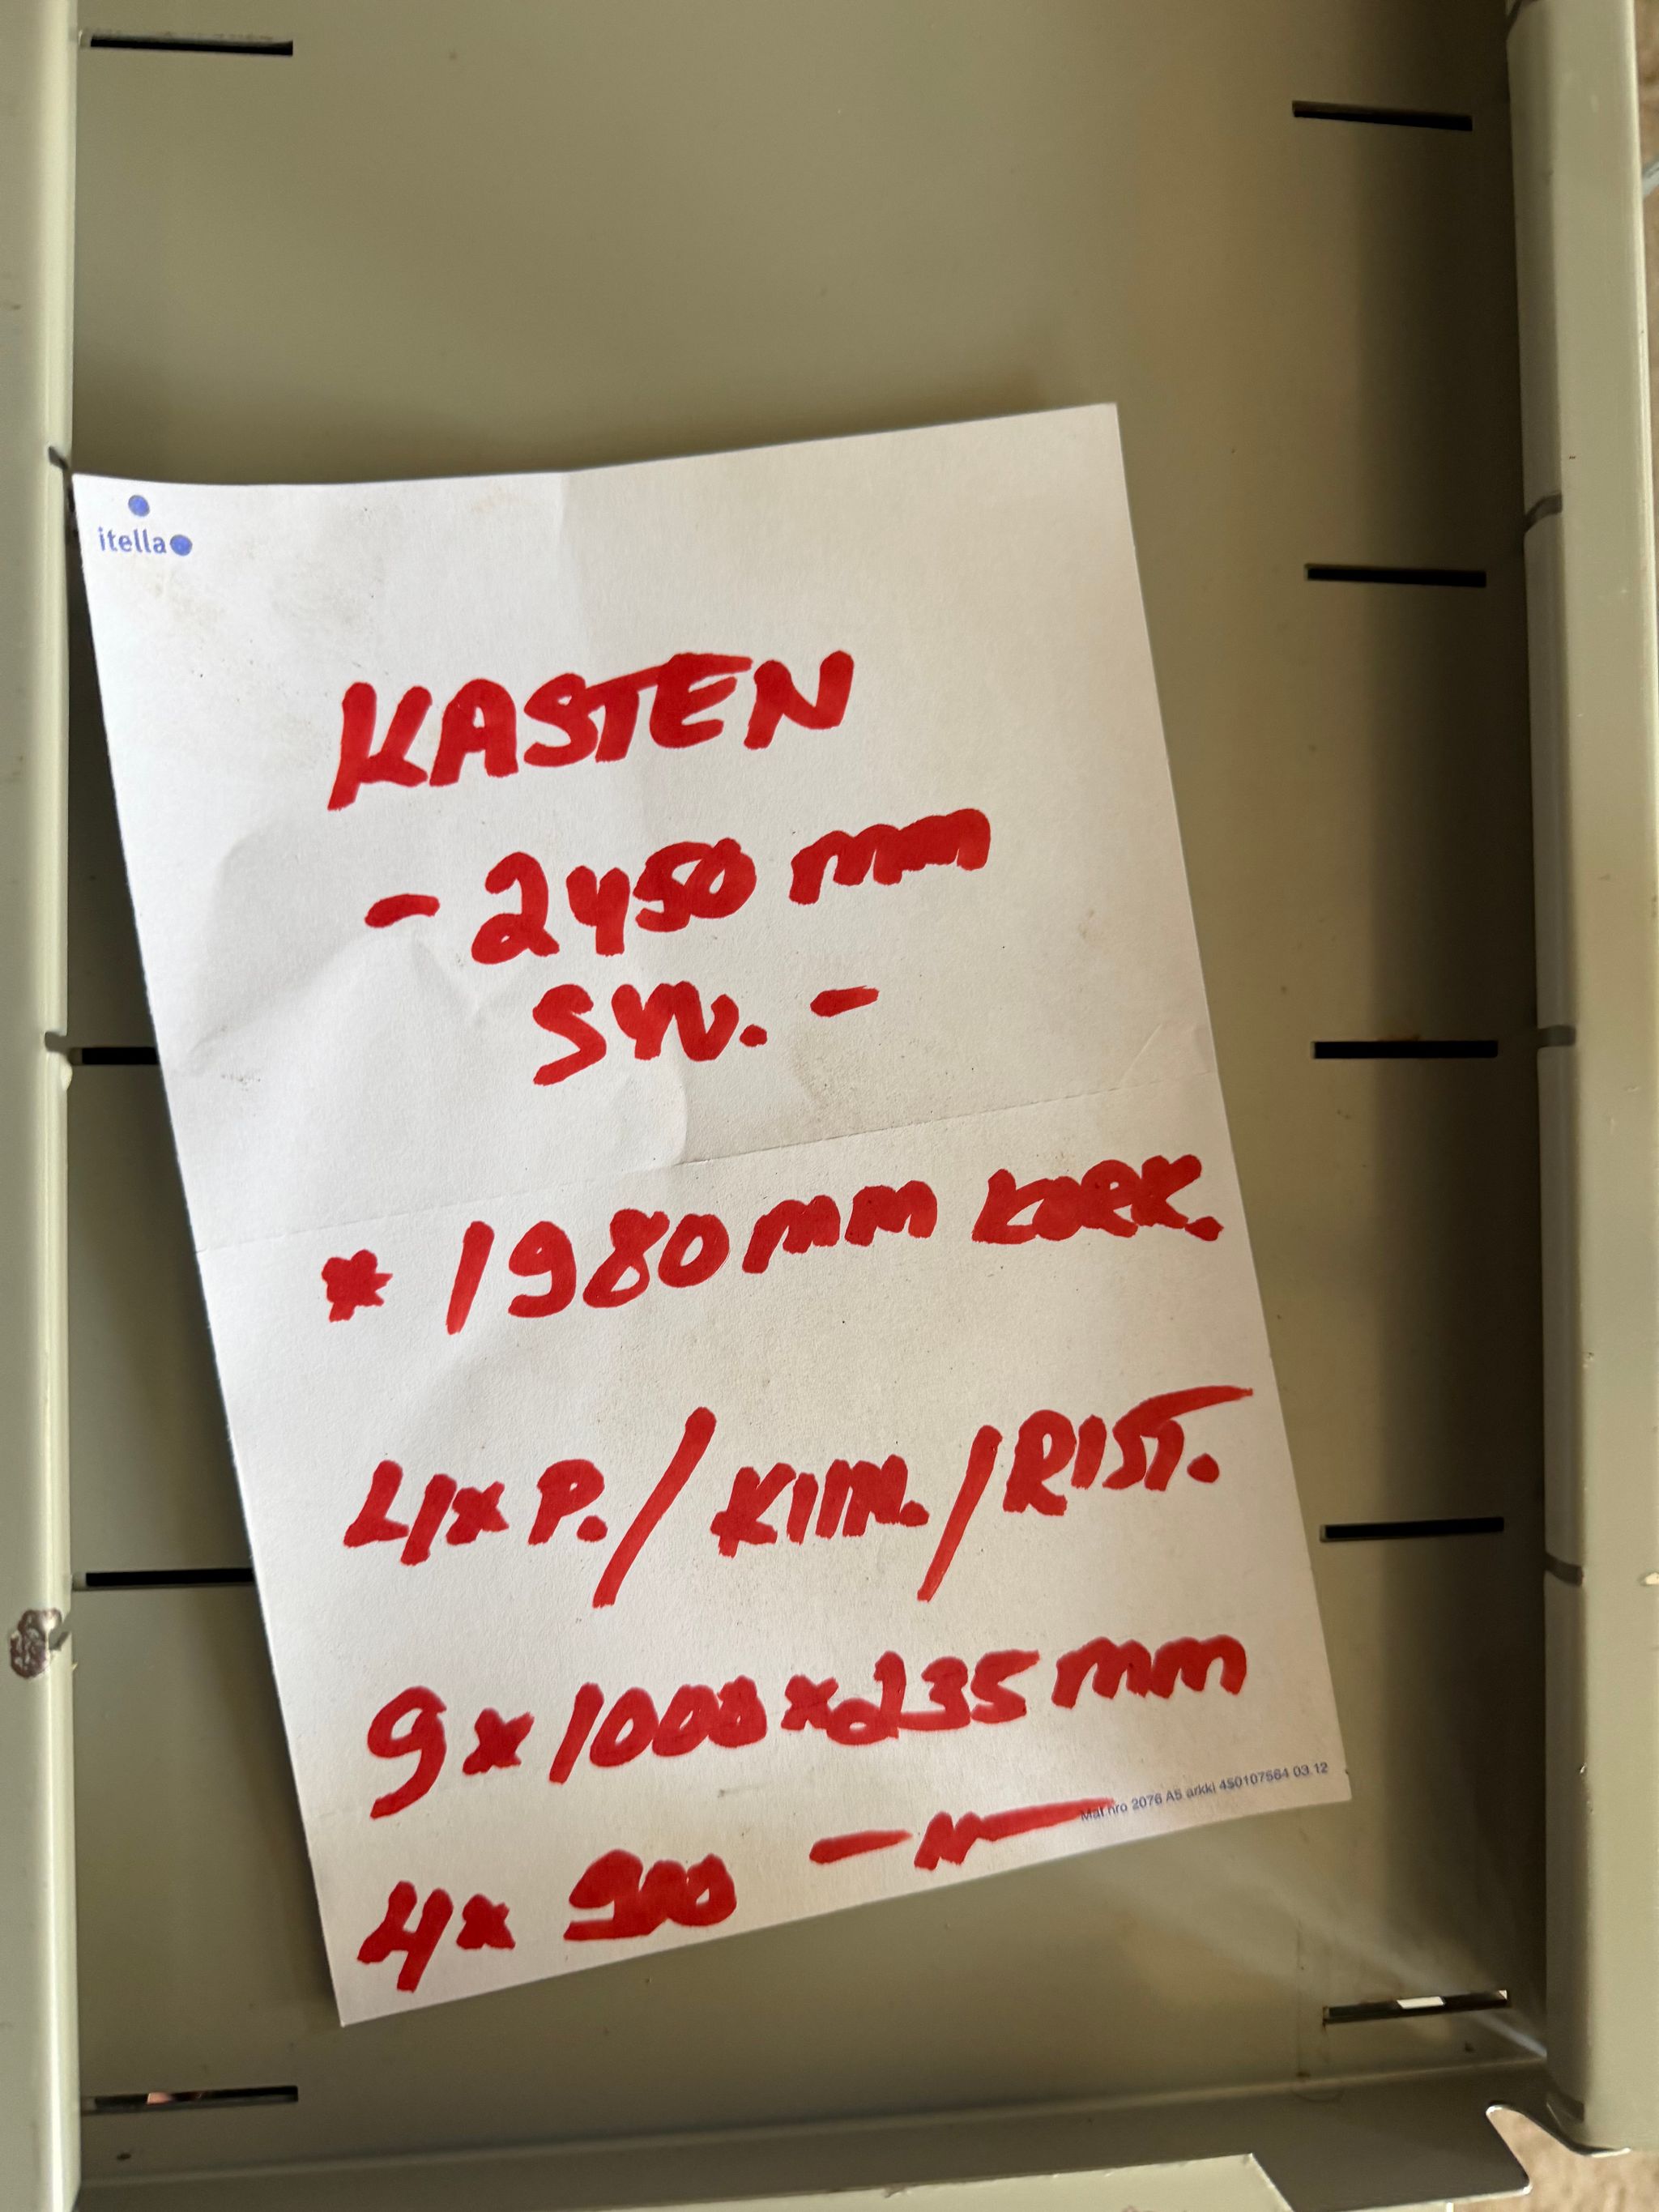 itella
KASTEN
- 2450 mm
SYV. -
* 1980 mm KORK.
4x P. / KIIN. / RIST.
9 x 1000 x 235 mm
Mat nro 2076 A5 arkki 450107564 03.12
4x 900 — " —